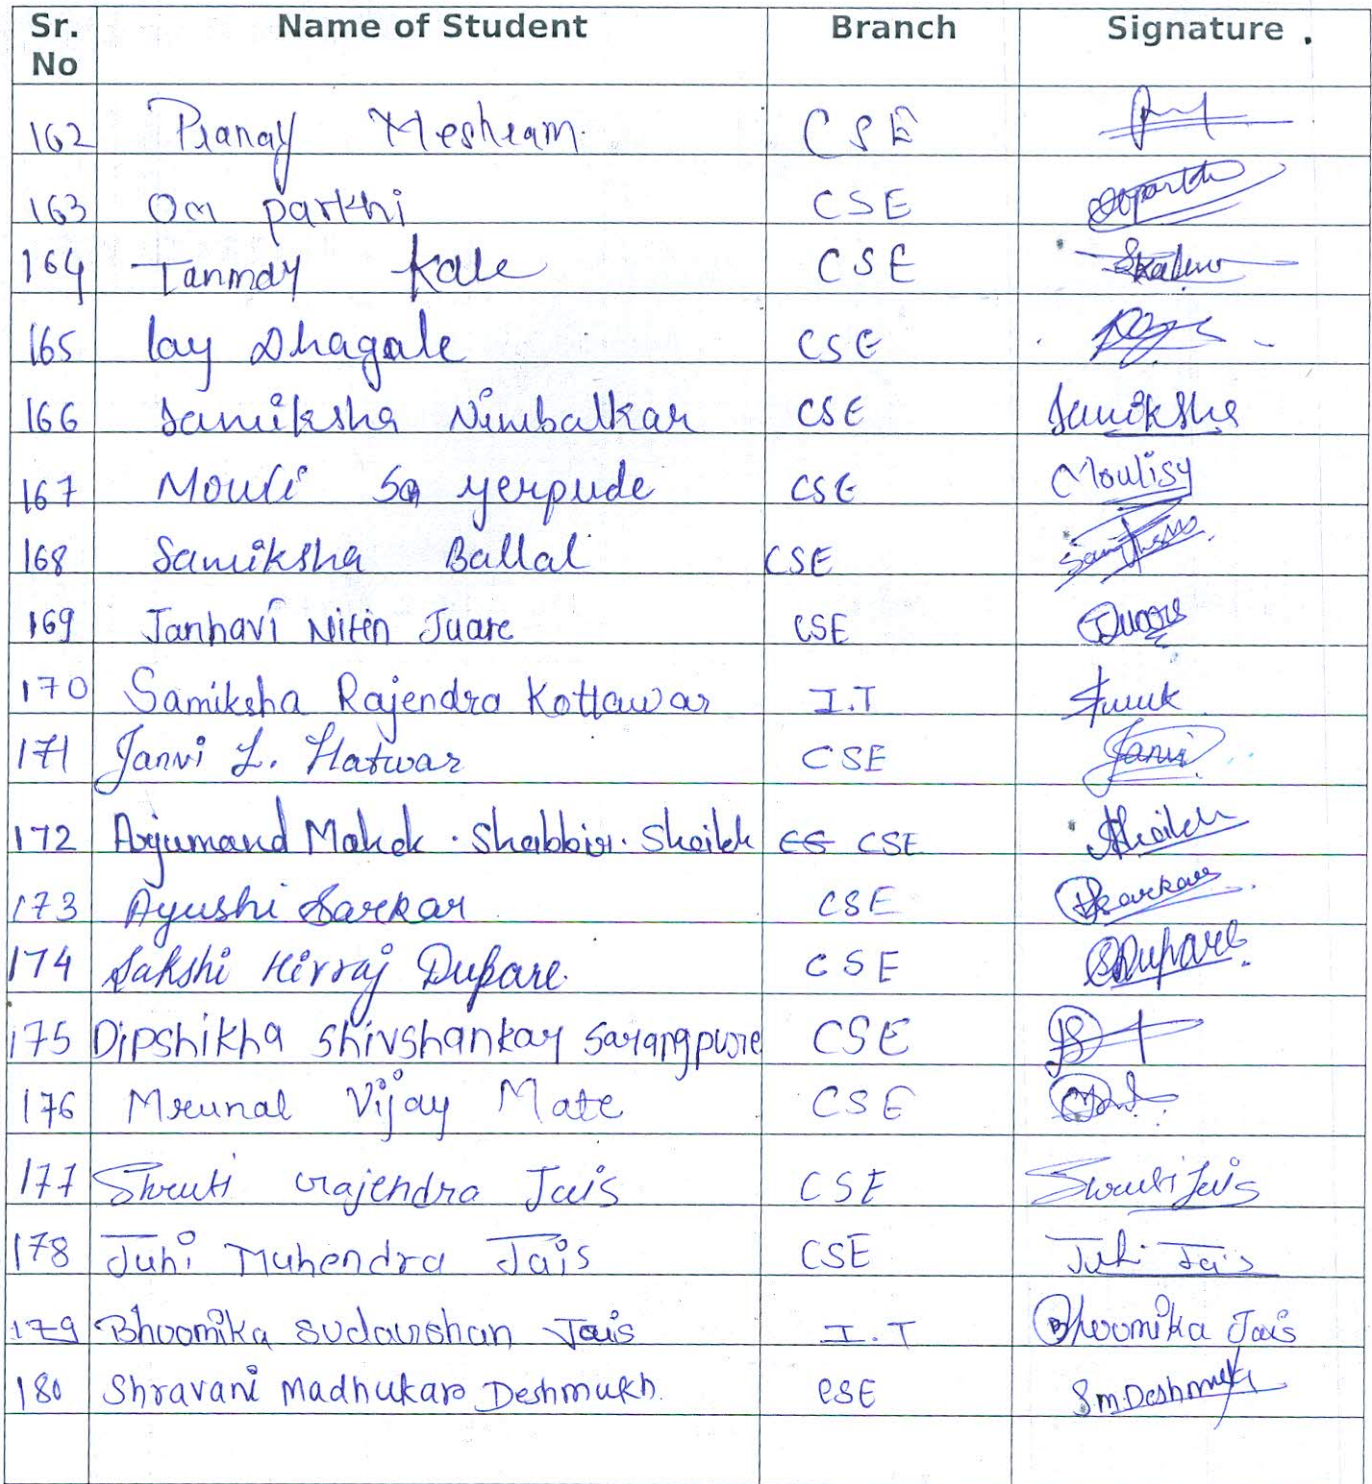 Sr. No Name of Student Branch Signature
162 Pranay Meshram. CSE
163 Om parkhi CSE
164 Tanmay Kale CSE
165 Jay Dhagale CSE
166 Samiksha Nimbalkar CSE Samiksha
167 Mouli Sa yerpude CSE Moulisy
168 Samiksha Ballal CSE
169 Janhavi Nitin Juare CSE
170 Samiksha Rajendra Kottawar I.T
171 Janvi L. Hatwar CSE Janvi
172 Arjumand Mahek . Shabbir . Shaikh CSE Shaikh
173 Ayushi Sarkar CSE
174 Sakshi Hirraj Dupare. CSE SDupare
175 Dipshikha Shivshankar Sarangpure CSE
176 Mrunal Vijay Mate CSE
177 Shruti rajendra Jais CSE Shruti Jais
178 Juhi Muhendra Jais CSE Juhi Jais
179 Bhoomika Sudarshan Jais I.T Bhoomika Jais
180 Shravani Madhukar Deshmukh. CSE S.m.Deshmukh